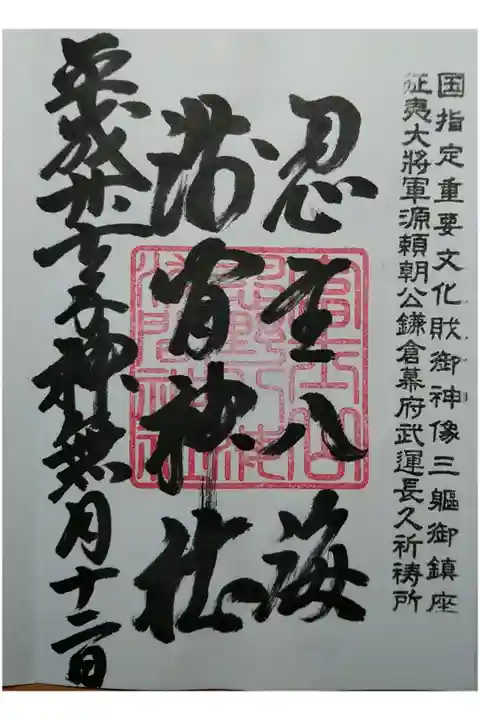 国指定重要文化財御神像三軀御鎮座
征夷大將軍源頼朝公鎌倉幕府武運長久祈祷所
忍野八海
浅間神社
平成廿年神無月十二日